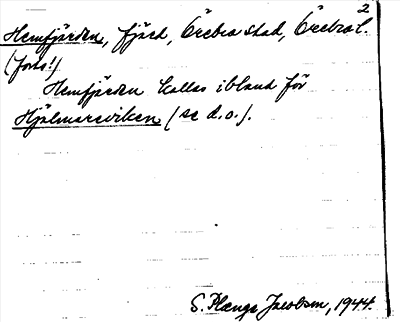 2
Hemfjärden, fjärd, Örebro stad, Örebro l.
(forts!)
Hemfjärden kallas ibland för
Hjälmarsviken (se d.o.).
S. Plænge Jacobson, 1944.